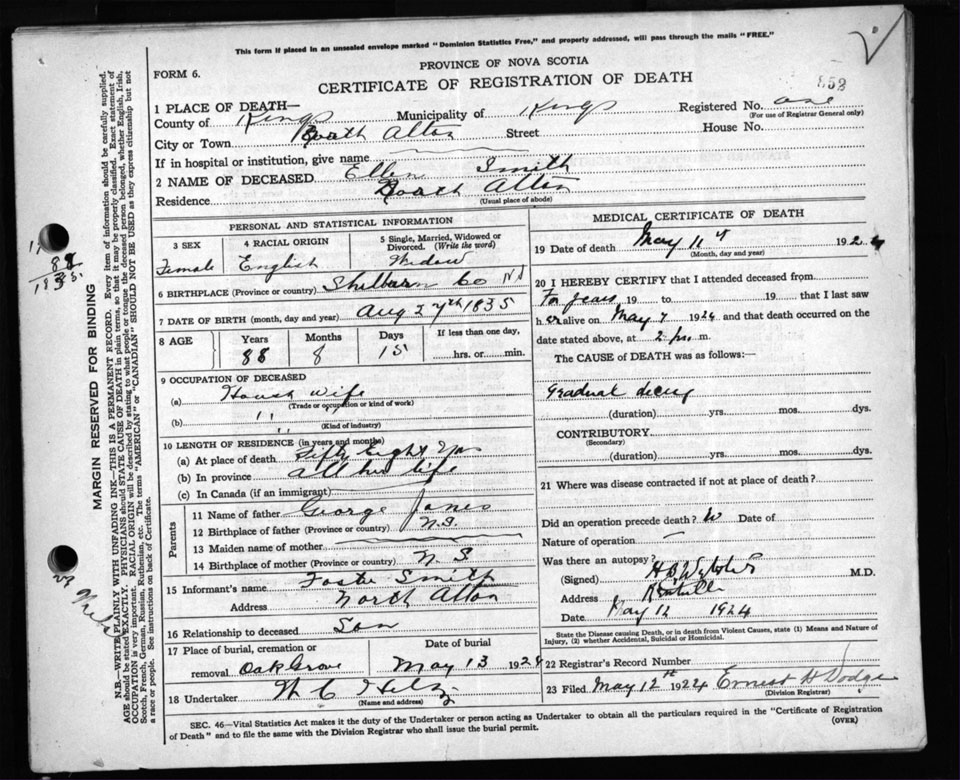 This form if placed in an unsealed envelope marked "Dominion Statistics Free," and properly addressed, will pass through the mails "FREE."
PROVINCE OF NOVA SCOTIA
FORM 6.
CERTIFICATE OF REGISTRATION OF DEATH
852
1 PLACE OF DEATH—
County of Kings Municipality of Kings Registered No. one
(For use of Registrar General only)
City or Town North Alton Street House No.
If in hospital or institution, give name
2 NAME OF DECEASED Ellen Smith
Residence North Alton
(Usual place of abode)
PERSONAL AND STATISTICAL INFORMATION
3 SEX
Female
4 RACIAL ORIGIN
English
5 Single, Married, Widowed or Divorced. (Write the word)
Widow
6 BIRTHPLACE (Province or country) Shelburn Co NS
7 DATE OF BIRTH (month, day and year) Aug 27th 1835
8 AGE
Years Months Days If less than one day,
88 8 15 hrs. or min.
9 OCCUPATION OF DECEASED
(a) House wife
(Trade or occupation or kind of work)
(b) " "
(Kind of industry)
10 LENGTH OF RESIDENCE (in years and months)
(a) At place of death Fifty Eight Yrs
(b) In province all her life
(c) In Canada (if an immigrant)
Parents
11 Name of father George Jones
12 Birthplace of father (Province or country) N.S.
13 Maiden name of mother
14 Birthplace of mother (Province or country) N. S.
15 Informant's name Foster Smith
Address North Alton
16 Relationship to deceased Son
17 Place of burial, cremation or removal Oak Grove
Date of burial
May 13 1924
18 Undertaker W C
(Name and address)
MEDICAL CERTIFICATE OF DEATH
19 Date of death May 11th 1924
(Month, day and year)
20 I HEREBY CERTIFY that I attended deceased from
For years 19 to 19 that I last saw
her alive on May 7 1924 and that death occurred on the
date stated above, at 2 p. m.
The CAUSE of DEATH was as follows:—
Gradual decay
(duration) yrs. mos. dys.
CONTRIBUTORY
(Secondary)
(duration) yrs. mos. dys.
21 Where was disease contracted if not at place of death?
Did an operation precede death? Date of
Nature of operation —
Was there an autopsy?
(Signed) M.D.
Address Kentville
Date May 12 1924
State the Disease causing Death, or in death from Violent Causes, state (1) Means and Nature of
Injury, (2) whether Accidental, Suicidal or Homicidal.
22 Registrar's Record Number
23 Filed May 12th 1924 Ernest H Dodge
(Division Registrar)
SEC. 46—Vital Statistics Act makes it the duty of the Undertaker or person acting as Undertaker to obtain all the particulars required in the "Certificate of Registration
of Death" and to file the same with the Division Registrar who shall issue the burial permit.
(OVER)
MARGIN RESERVED FOR BINDING
N.B.—WRITE PLAINLY WITH UNFADING INK—THIS IS A PERMANENT RECORD. Every item of information should be carefully supplied.
AGE should be stated EXACTLY. PHYSICIANS should STATE CAUSE OF DEATH in plain terms, so that it may be properly classified. Exact statement of
OCCUPATION is very important. RACIAL ORIGIN will be described by stating to what people or tongue the deceased person belonged, whether English, Irish,
Scotch, French, German, Russian, Ruthenian, etc. The terms "AMERICAN" or "CANADIAN" SHOULD NOT BE USED as they express citizenship but not
a race or people. See instructions on back of Certificate.